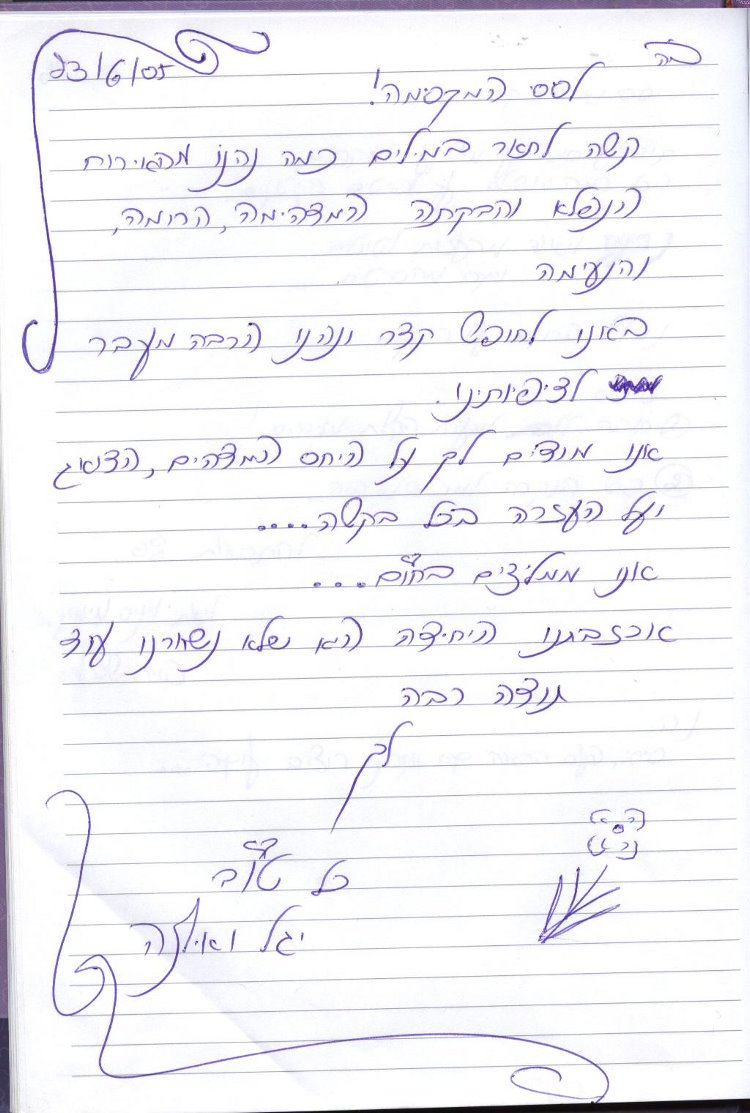 בה
23/6/05
לסטי המקסימה!
קשה לתאר במילים כמה נהננו מהאירוח
הנפלא והבקתה המדהימה, הרומה,
והנעימה
באנו לחופש קצר ונהנו הרבה מעבר
לציפיותינו.
אנו מודים לך על היחס המדהים, הדואג
ועל העזרה בכל בקשה....
אנו ממליצים בחום...
אכזבתנו היחידה היא שלא נשארנו עוד
תודה רבה
לך
כל טוב
יגל ואילנה